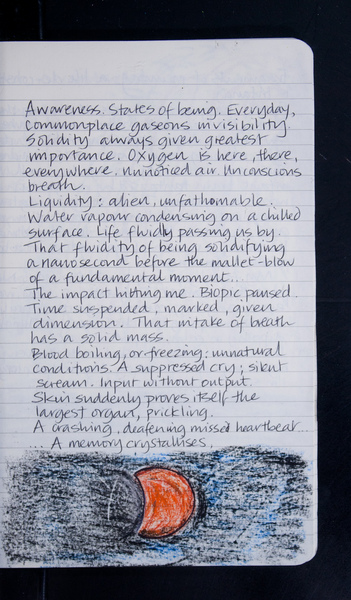 Awareness. States of being. Everyday,
Commonplace gaseous invisibility.
Solidity always given greatest
importance. Oxygen is here, there,
everywhere. Unnoticed air. Unconscious
breath.
Liquidity: alien, unfathomable.
Water vapour condensing on a chilled
surface. Life fluidly passing us by.
That fluidity of being solidifying
a nanosecond before the mallet-blow
of a fundamental moment...
The impact hitting me. Biopic paused.
Time suspended, marked, given
dimension. That intake of breath
has a solid mass.
Blood boiling, or freezing; unnatural
conditions. A suppressed cry; silent
scream. Input without output.
Skin suddenly proves itself the
largest organ, prickling.
A crashing, deafening missed heartbeat...
... A memory crystallises.